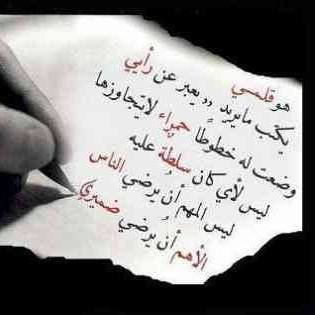 هو قلمي
يكتب ما يريد ,, يعبر عن رأيي
وضعت له خطوطا حمراء لا يتجاوزها
ليس لأي كان سلطة عليه
ليس المهم أن يرضي الناس
الأهم أن يرضي ضميري